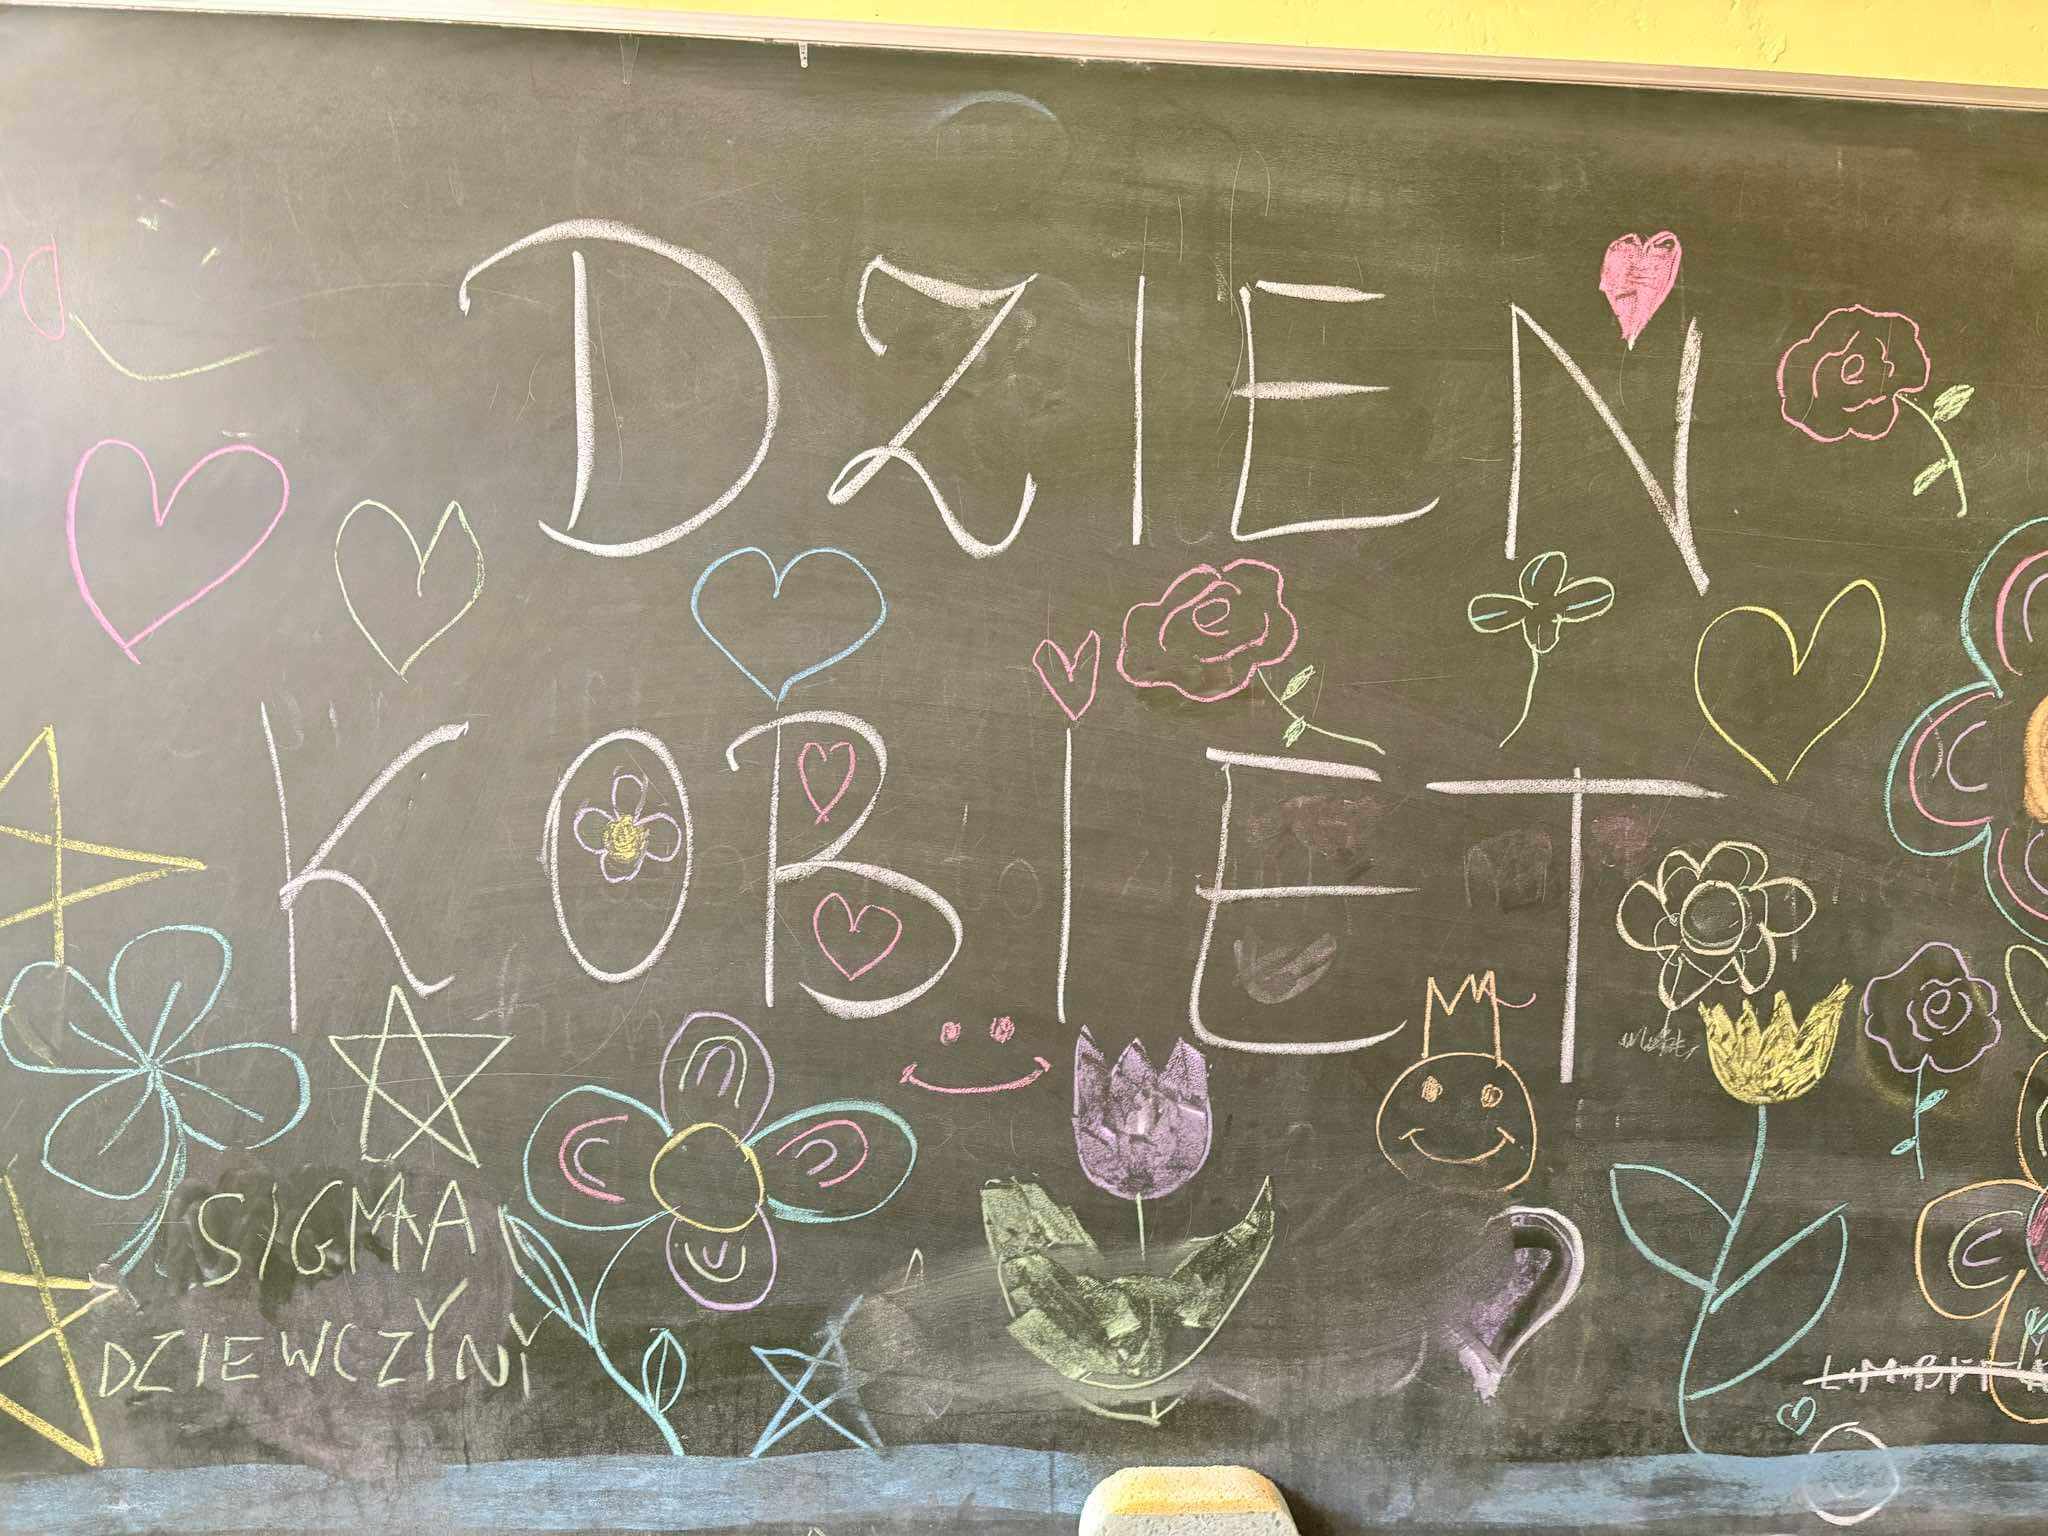 DZIEŃ
KOBIET
SIGMA
DZIEWCZYNY